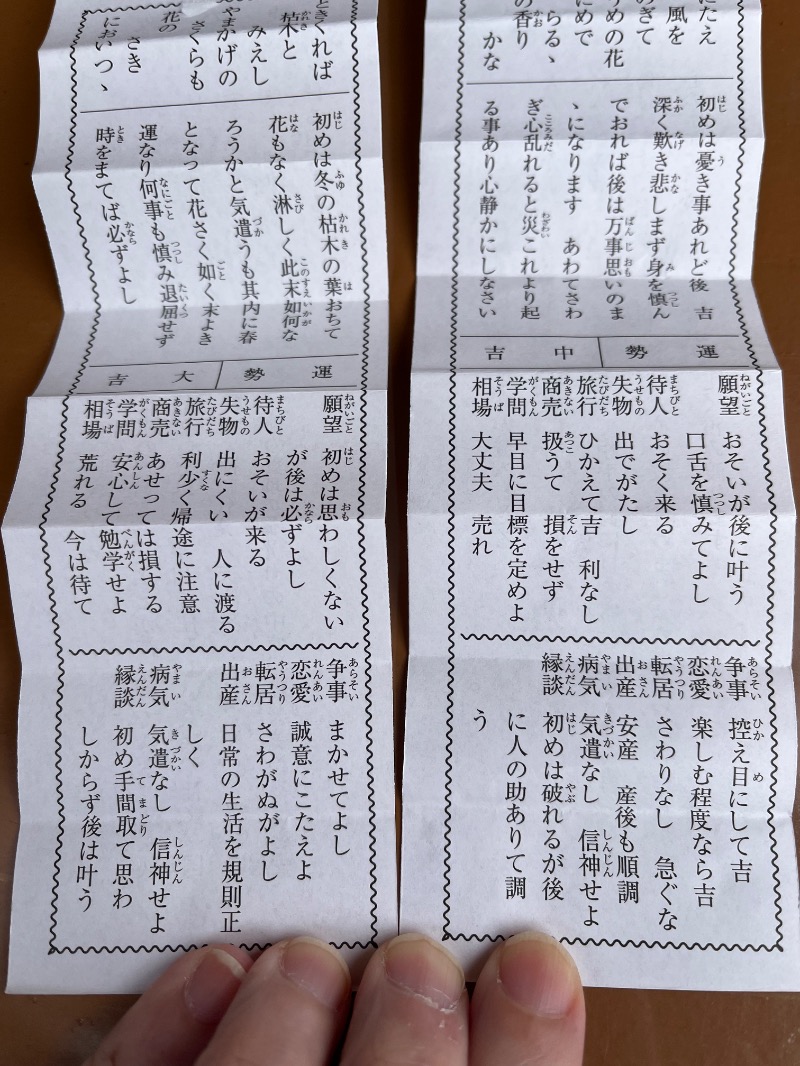 にたえ
風を
のぎて
うめの花
にめで
らるゝ
の香り
かな
初めは憂き事あれど後 吉
深く歎き悲しまず身を慎ん
でおれば後は万事思いのま
ゝになります あわてさわ
ぎ心乱れると災これより起
る事あり心静かにしなさい
運勢 中吉
願望 おそいが後に叶う
口舌を慎みてよし
待人 おそく来る
失物 出でがたし
旅行 ひかえて吉 利なし
商売 扱うて 損をせず
学問 早目に目標を定めよ
相場 大丈夫 売れ
争事 控え目にして吉
恋愛 楽しむ程度なら吉
転居 さわりなし 急ぐな
出産 安産 産後も順調
病気 気遣なし 信神せよ
縁談 初めは破れるが後
に人の助ありて調
う
ときくれば
枯木と
みえし
やまかげの
さくらも
花の
さき
においつゝ
初めは冬の枯木の葉おちて
花もなく淋しく此末如何な
ろうかと気遣うも其内に春
となって花さく如く末よき
運なり何事も慎み退屈せず
時をまてば必ずよし
運勢 大吉
願望 初めは思わしくない
が後は必ずよし
待人 おそいが来る
失物 出にくい 人に渡る
旅行 利少く帰途に注意
商売 あせっては損する
学問 安心して勉学せよ
相場 荒れる 今は待て
争事 まかせてよし
恋愛 誠意にこたえよ
転居 さわがぬがよし
出産 日常の生活を規則正
しく
病気 気遣なし 信神せよ
縁談 初め手間取て思わ
しからず後は叶う